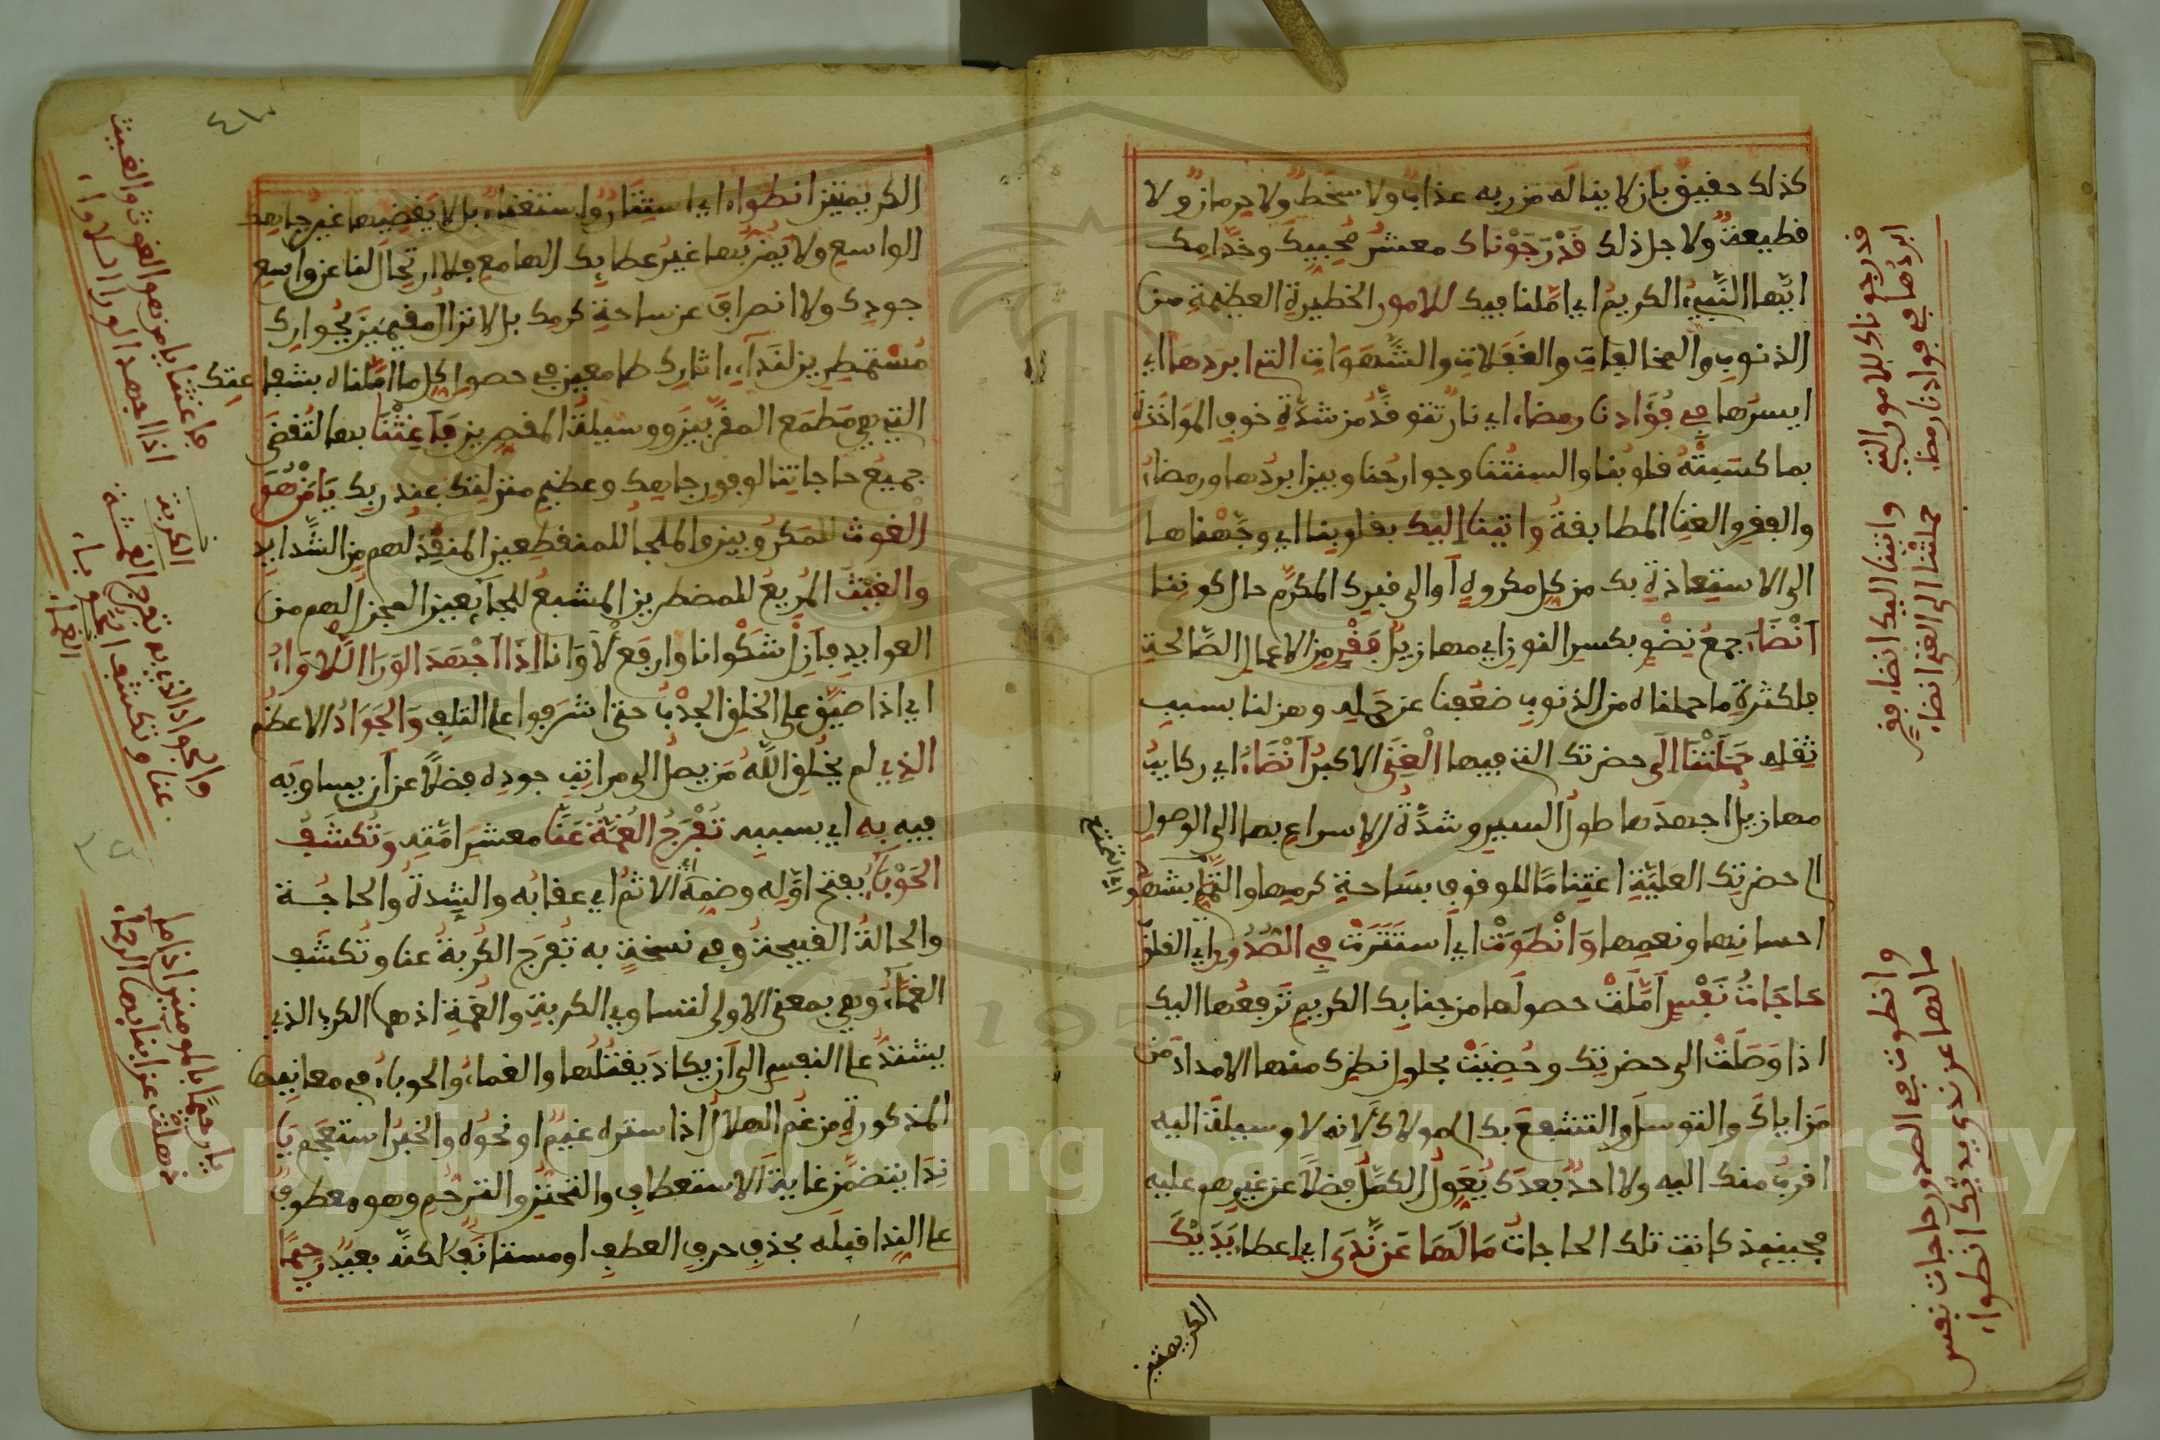 كذلك حقيق بأن لا يناله من ربه عذاب ولا سخط ولا حرمان ولا
قطيعة ولاجل ذلك قد رجوناك معشر محبيك وخدامك
ايها النبي الكريم اي امّلنا فيك للامور الخطيرة العظيمة من
الذنوب والمخالفات والغفلات والشهوات التي ابردها اي
ايسرها في فؤادنا رمضاء اي نار تتوقد من شدة خوف المواخذة
بما كسبته قلوبنا والسنتنا وجوارحنا وبين ابردها ورمضاء
والفقر والغنا المطابقة واتينا اليك بقلوبنا اي وجّهناها
الى الاستعاذة بك من كل مكروه أو الى قبرك المكرّم حال كوننا
أنضاء جمع نضو بكسر النون اي مهازيل فقر من الاعمال الصالحة
فلكثرة ما حملناه من الذنوب ضعفنا عن حمله وهزلنا بسبب
ثقله حملتنا الى حضرتك التي فيها الغنى الاكبر أنضاء اي ركايب
مهازيل اجهدها طول السير وشدة الإسراع بها الى الوصول
الى حضرتك العليّة اغتناما للوقوف بساحة كرمها والتملي بشهود
اي التمتع
احسانها ونعمها وانطوت اي استترت في الصدور اي القلوب
حاجات نفس أمّلت حصولها من جنابك الكريم ترفعها اليك
اذا وصلت الى حضرتك وحظيت بحلول نظرك منها الامداد من
مزاياك والتوسل والتشفع بك الى مولاك لانه لا وسيلة اليه
اقرب منك اليه ولا احد بعدك يعوّل الكمّل فضلا عن غيرهم عليه
فحينئذ كانت تلك الحاجات ما لها عن ندى اي اعطاء يديك
الكريمتين
قد رجوناك للامور التي
ابردها في فوادنا رمضاء
واتينا اليك انضاء فقر
حملتنا الى الغنى انضاء
وانطوت في الصدور حاجات نفس
ما لها عن ندى يديك انطواء
الكريمتين انطواء اي استتار واستغناء بل لا يقضيها غير جاهك
الواسع ولا يمز بها غير عطايك الهامع فلا ارتحال لنا عن واسع
جودك ولا انصراف عن ساحة كرمك بل لا نزال مقيمين بجوارك
مستمطرين لنداء اثارك طامعين في حصول كل ما امّلناه بشفاعتك
التي هي مطمع المقربين ووسيلة المقصرين فأغثنا بها لتقضى
جميع حاجاتنا لوفور جاهك وعظيم منزلتك عند ربك يا من هو
الغوث للمكروبين والملجأ للمنقطعين المنقذ لهم من الشدايد
والغيث المريع للمضطرين المشبع للجآيعين المجزل لهم من
العوايد فأزل شكوانا وارفع لأوانا اذا اجهد الورا اللأواء
اي اذا ضيّق على الخلق الجدب حتى اشرفوا على التلف والجواد الاعظم
الذي لم يخلق الله من يصل الى مراتب جوده فضلا عن أن يساويه
فيه به اي بسببه تفرج الغمّة عنّا معشر امّته وتكشف
الحوباء بفتح اوّله وضمه الاثم اي عقابه والشدة والحاجة
والحالة القبيحة وفي نسخة به تفرج الكربة عنا وتكشف
الغماء وهي بمعنى الاولى لتساوي الكربة والغمة اذ هما الكرب الذي
يشتد على النفس الى أن يكاد يقتلها والغماء والحوباء في معانيها
المذكورة من غم الهلال اذا ستره غيم او نحوه والخبر استعجم يا
ندا يتضمن غاية الاستعطاف والتحنن والترحم وهو معطوف
على الندا قبله بحذف حرف العطف او مستانف لكنّه بعيد رحيما
فاغثنا يا من هو الغوث والغيث
اذا اجهد الورا اللاواء
والجواد الذي به تفرج الغمة
عنا وتكشف الحوباء
الكربة
الغماء
يا رحيما بالمومنين اذا ما
ذهلت عن ابنايها الرحماء